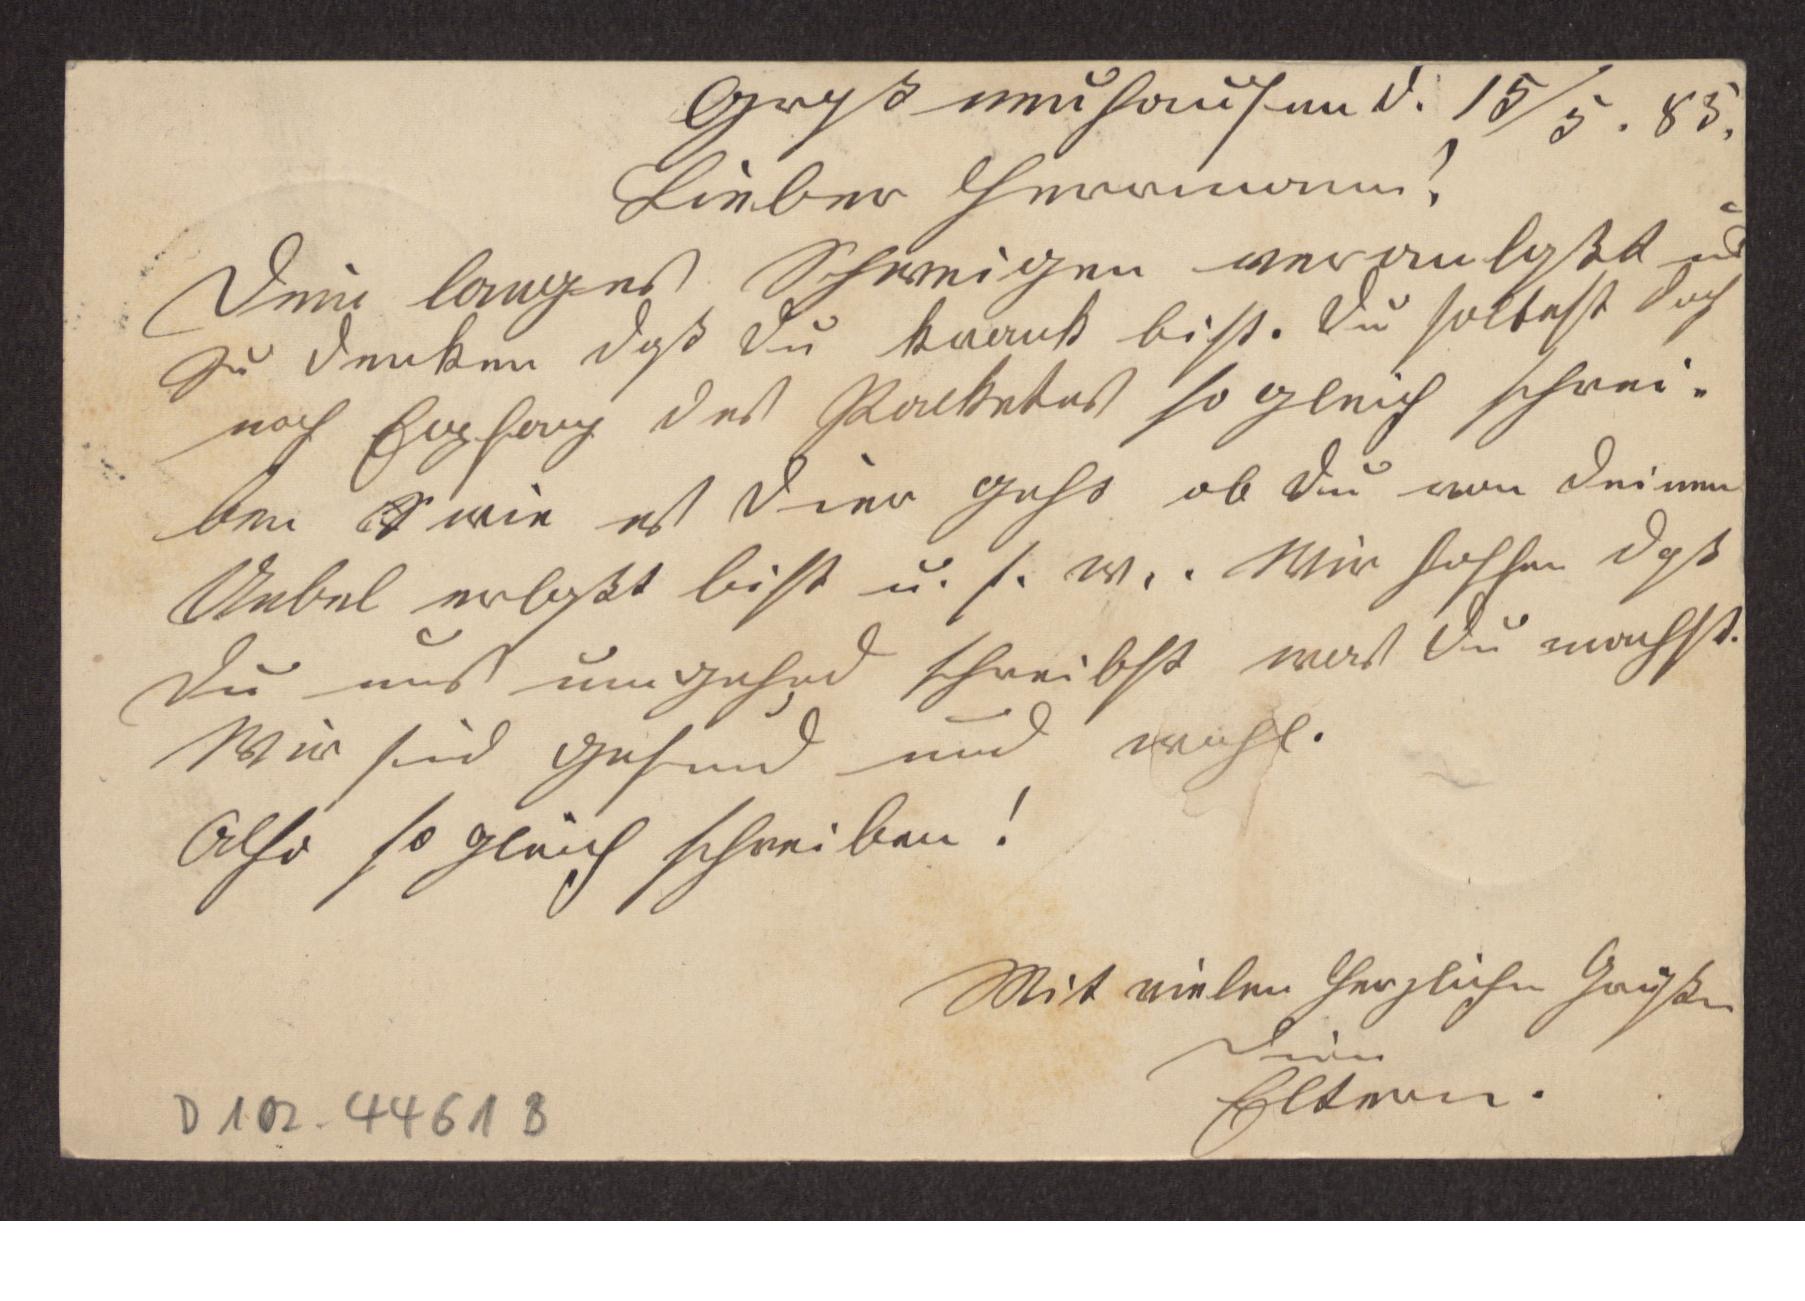 Großneuhausen d. 15/5. 85.
Lieber Herrmann!
Dein langes Schweigen veranlaßt uns
zu denken daß Du krank bist. Du soltest doch
nach Empfang des Packetes sogleich schrei-
ben wie es Dier geht ob Du von Deinen
Uebel erlößt bist u. s. w.. Wir hoffen daß
Du uns umgehend schreibst was Du machst.
Wir sind gesund und wohl.
Also so gleich schreiben!
Mit vielen herzlichen Grüßen
Deine
Eltern.
D 102-4461 B